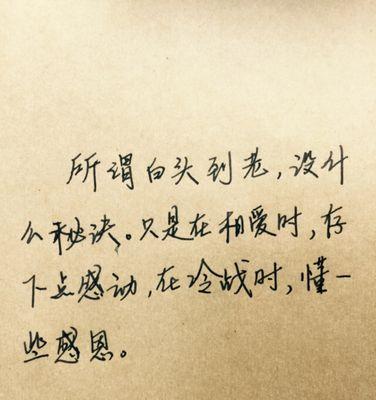 所谓白头到老，没什
么秘诀。只是在相爱时，存
下点感动，在冷战时，懂一
些感恩。